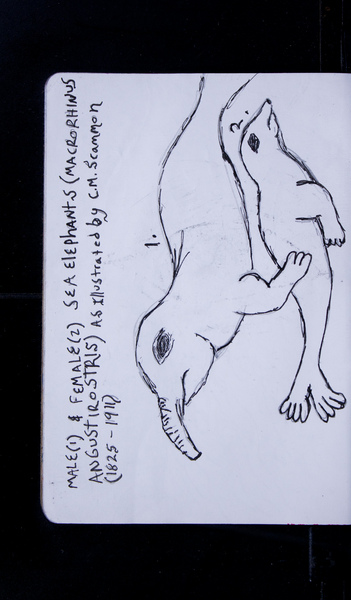 MALE(1) & FEMALE(2) SEA ELEPHANTS (MACRORHINUS
ANGUSTIROSTRIS) AS Illustrated by C.M. Scammon
(1825-1911)
1.
2.